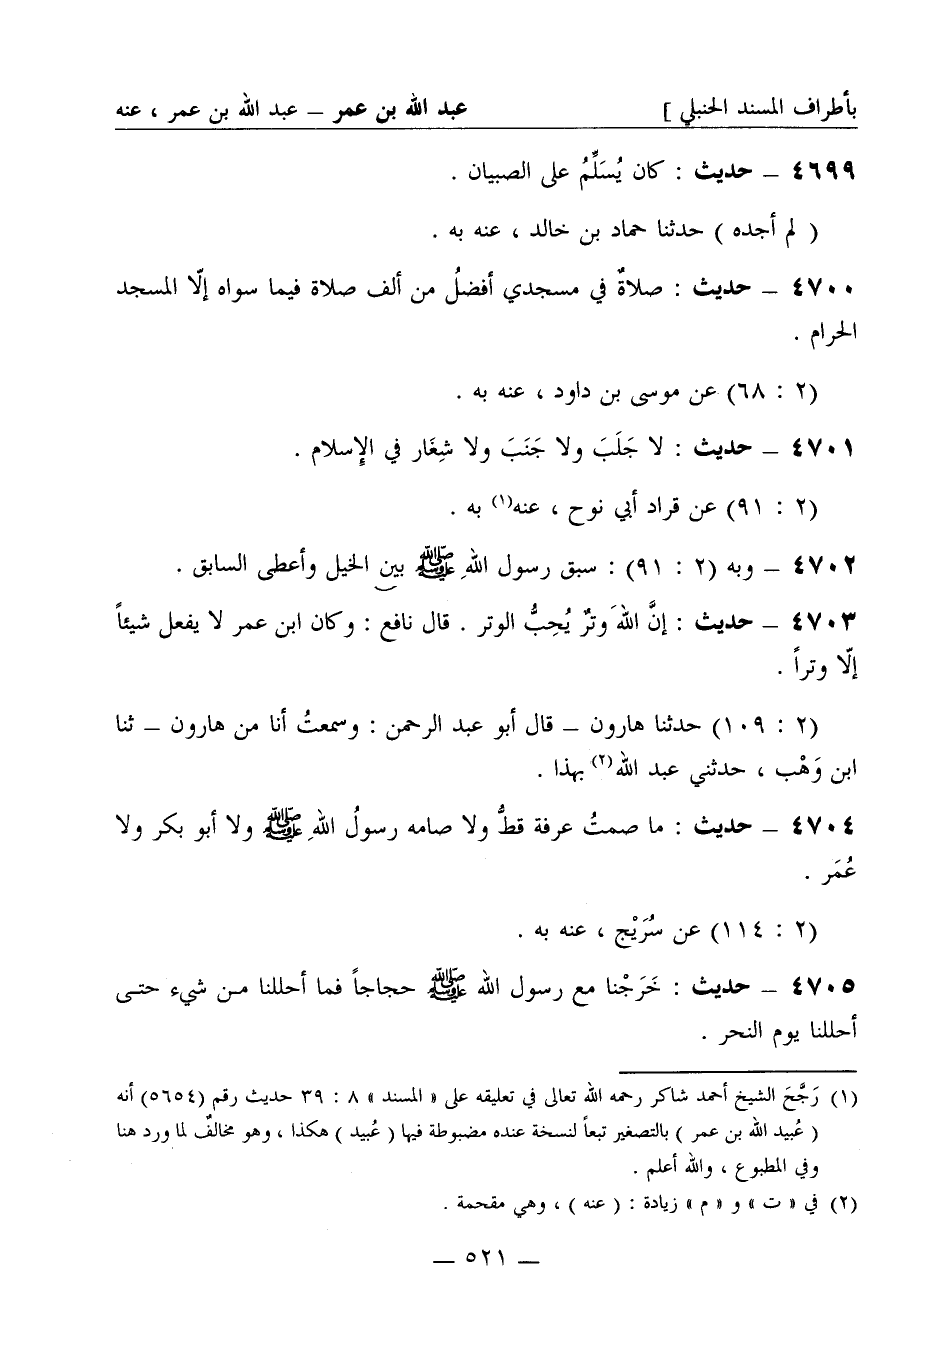 بأطراف المسند الحنبلي ] عبد الله بن عمر – عبد الله بن عمر ، عنه
٤٦٩٩ – حديث : كان يُسَلِّمُ على الصبيان .
( لم أجده ) حدثنا حماد بن خالد ، عنه به .
٤٧٠٠ – حديث : صلاةٌ في مسجدي أفضلُ من ألف صلاة فيما سواه إلّا المسجد
الحرام .
(٢ : ٦٨) عن موسى بن داود ، عنه به .
٤٧٠١ – حديث : لا جَلَبَ ولا جَنَبَ ولا شِغَار في الإسلام .
(٢ : ٩١) عن قراد أبي نوح ، عنه(١) به .
٤٧٠٢ – وبه (٢ : ٩١) : سبق رسول اللهِ ﷺ بين الخيل وأعطى السابق .
٤٧٠٣ – حديث : إنَّ اللهَ وترٌ يُحِبُّ الوتر . قال نافع : وكان ابن عمر لا يفعل شيئاً
إلّا وتراً .
(٢ : ١٠٩) حدثنا هارون – قال أبو عبد الرحمن : وسمعتُ أنا من هارون – ثنا
ابن وَهْب ، حدثني عبد الله(٢) بهذا .
٤٧٠٤ – حديث : ما صمتُ عرفة قطُّ ولا صامه رسولُ اللهِ ﷺ ولا أبو بكر ولا
عُمَر .
(٢ : ١١٤) عن سُرَيْج ، عنه به .
٤٧٠٥ – حديث : خَرَجْنا مع رسول الله ﷺ حجاجاً فما أحللنا من شيء حتى
أحللنا يوم النحر .
(١) رَجَّحَ الشيخ أحمد شاكر رحمه الله تعالى في تعليقه على « المسند » ٨ : ٣٩ حديث رقم (٥٦٥٤) أنه
( عُبيد الله بن عمر ) بالتصغير تبعاً لنسخة عنده مضبوطة فيها ( عُبيد ) هكذا ، وهو مخالفٌ لما ورد هنا
وفي المطبوع ، والله أعلم .
(٢) في « ت » و « م » زيادة : ( عنه ) ، وهي مقحمة .
– ٥٢١ –